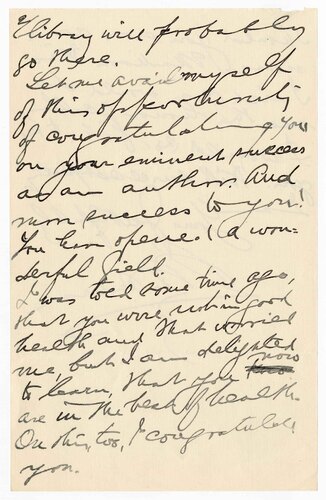 & library will probably
go there.
Let me avail myself
of this opportunity
of congratulating you
on your eminent success
as an author. And
more success to you!
You have opened a won-
derful field.
I was told some time ago,
that you were not in good
health and that worried
me, but I am delighted
to learn, now that you
are in the best of health.
On this, too, I congratulate
you.